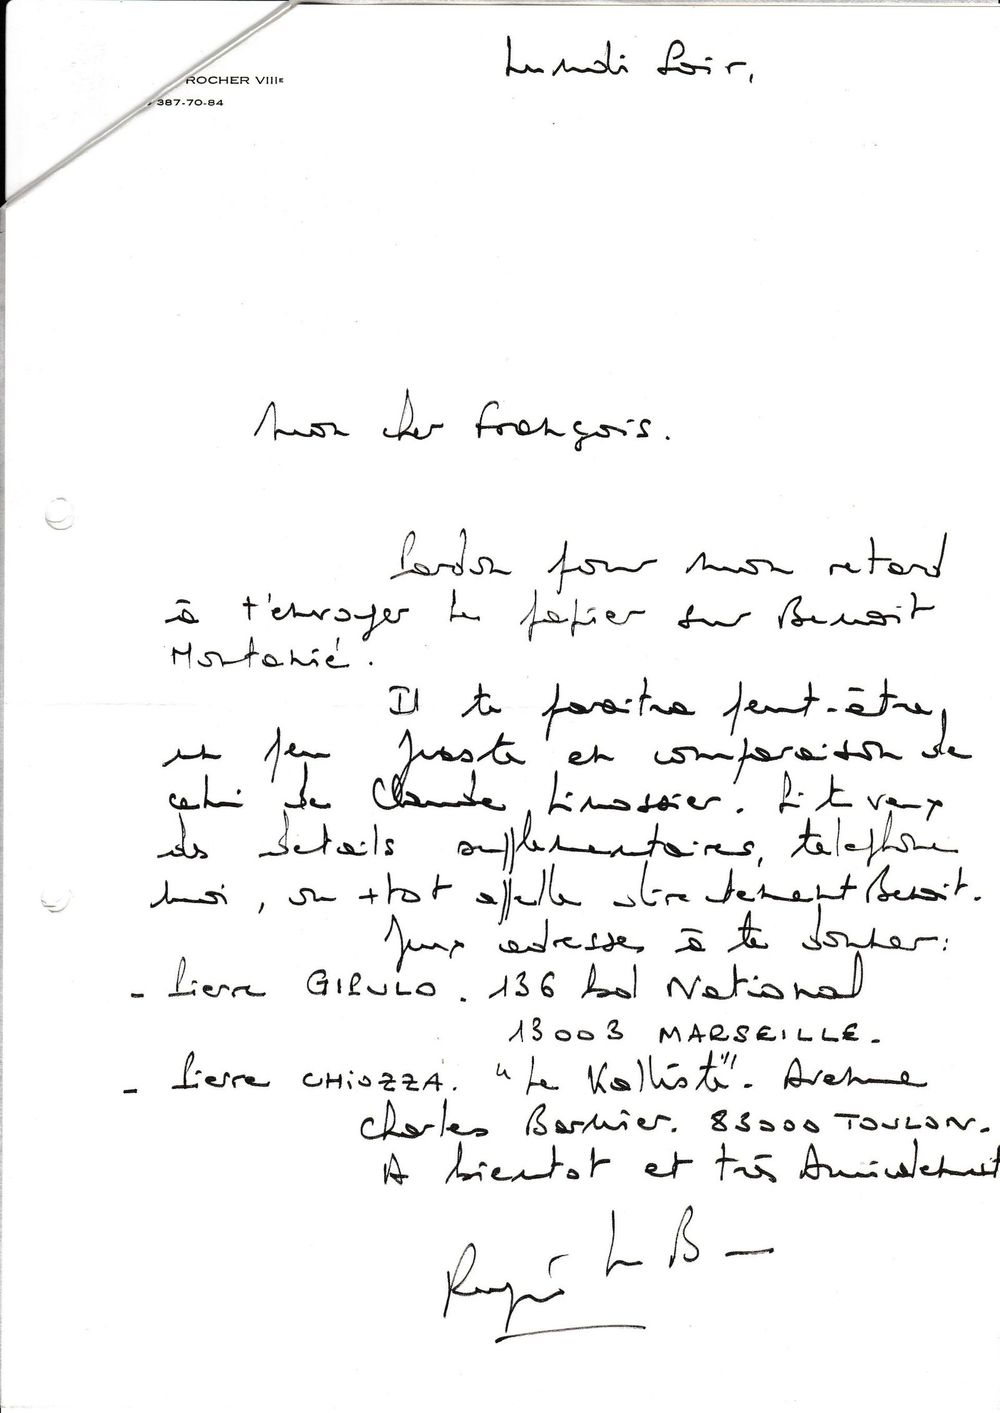 ROCHER VIIIe
387-70-84
Lundi soir,
Mon cher François.
Pardon pour mon retard
à t'envoyer le papier sur Benoit
Montanié.
Il te paraitra peut-être,
un peu juste en comparaison de
celui de Claude Linossier. Si tu veux
des details supplementaires, telephone
moi, ou + tot appelle directement Benoit.
adresses à te donner:
- Pierre GIRULO. 136 bd National
13003 MARSEILLE.
- Pierre CHIOZZA. "Le Kallisté". Avenue
Charles Barbier. 83000 TOULON.
A bientot et très Amicalement